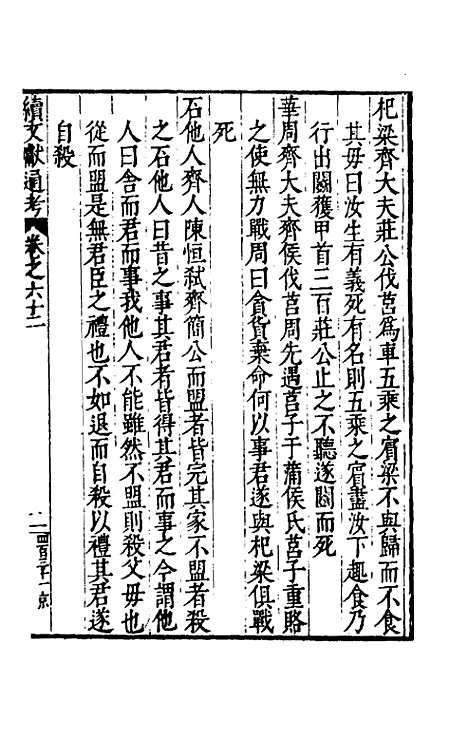 杞梁齊大夫莊公伐莒爲車五乘之賓梁不與歸而不食
其母曰汝生有義死有名則五乘之賓盡汝下趣食乃
行出鬬獲甲首三百莊公止之不聽遂鬬而死
華周齊大夫齊侯伐莒周先遇莒子于蒲侯氏莒子重賂
之使無力戰周曰貪貨棄命何以事君遂與杞梁俱戰
死
石他人齊人陳恒弑齊簡公而盟者皆完其家不盟者殺
之石他人曰昔之事其君者皆得其君而事之今謂他
人曰舍而君而事我他人不能雖然不盟則殺父母也
從而盟是無君臣之禮也不如退而自殺以禮其君遂
自殺
續文獻通考 卷之六十二